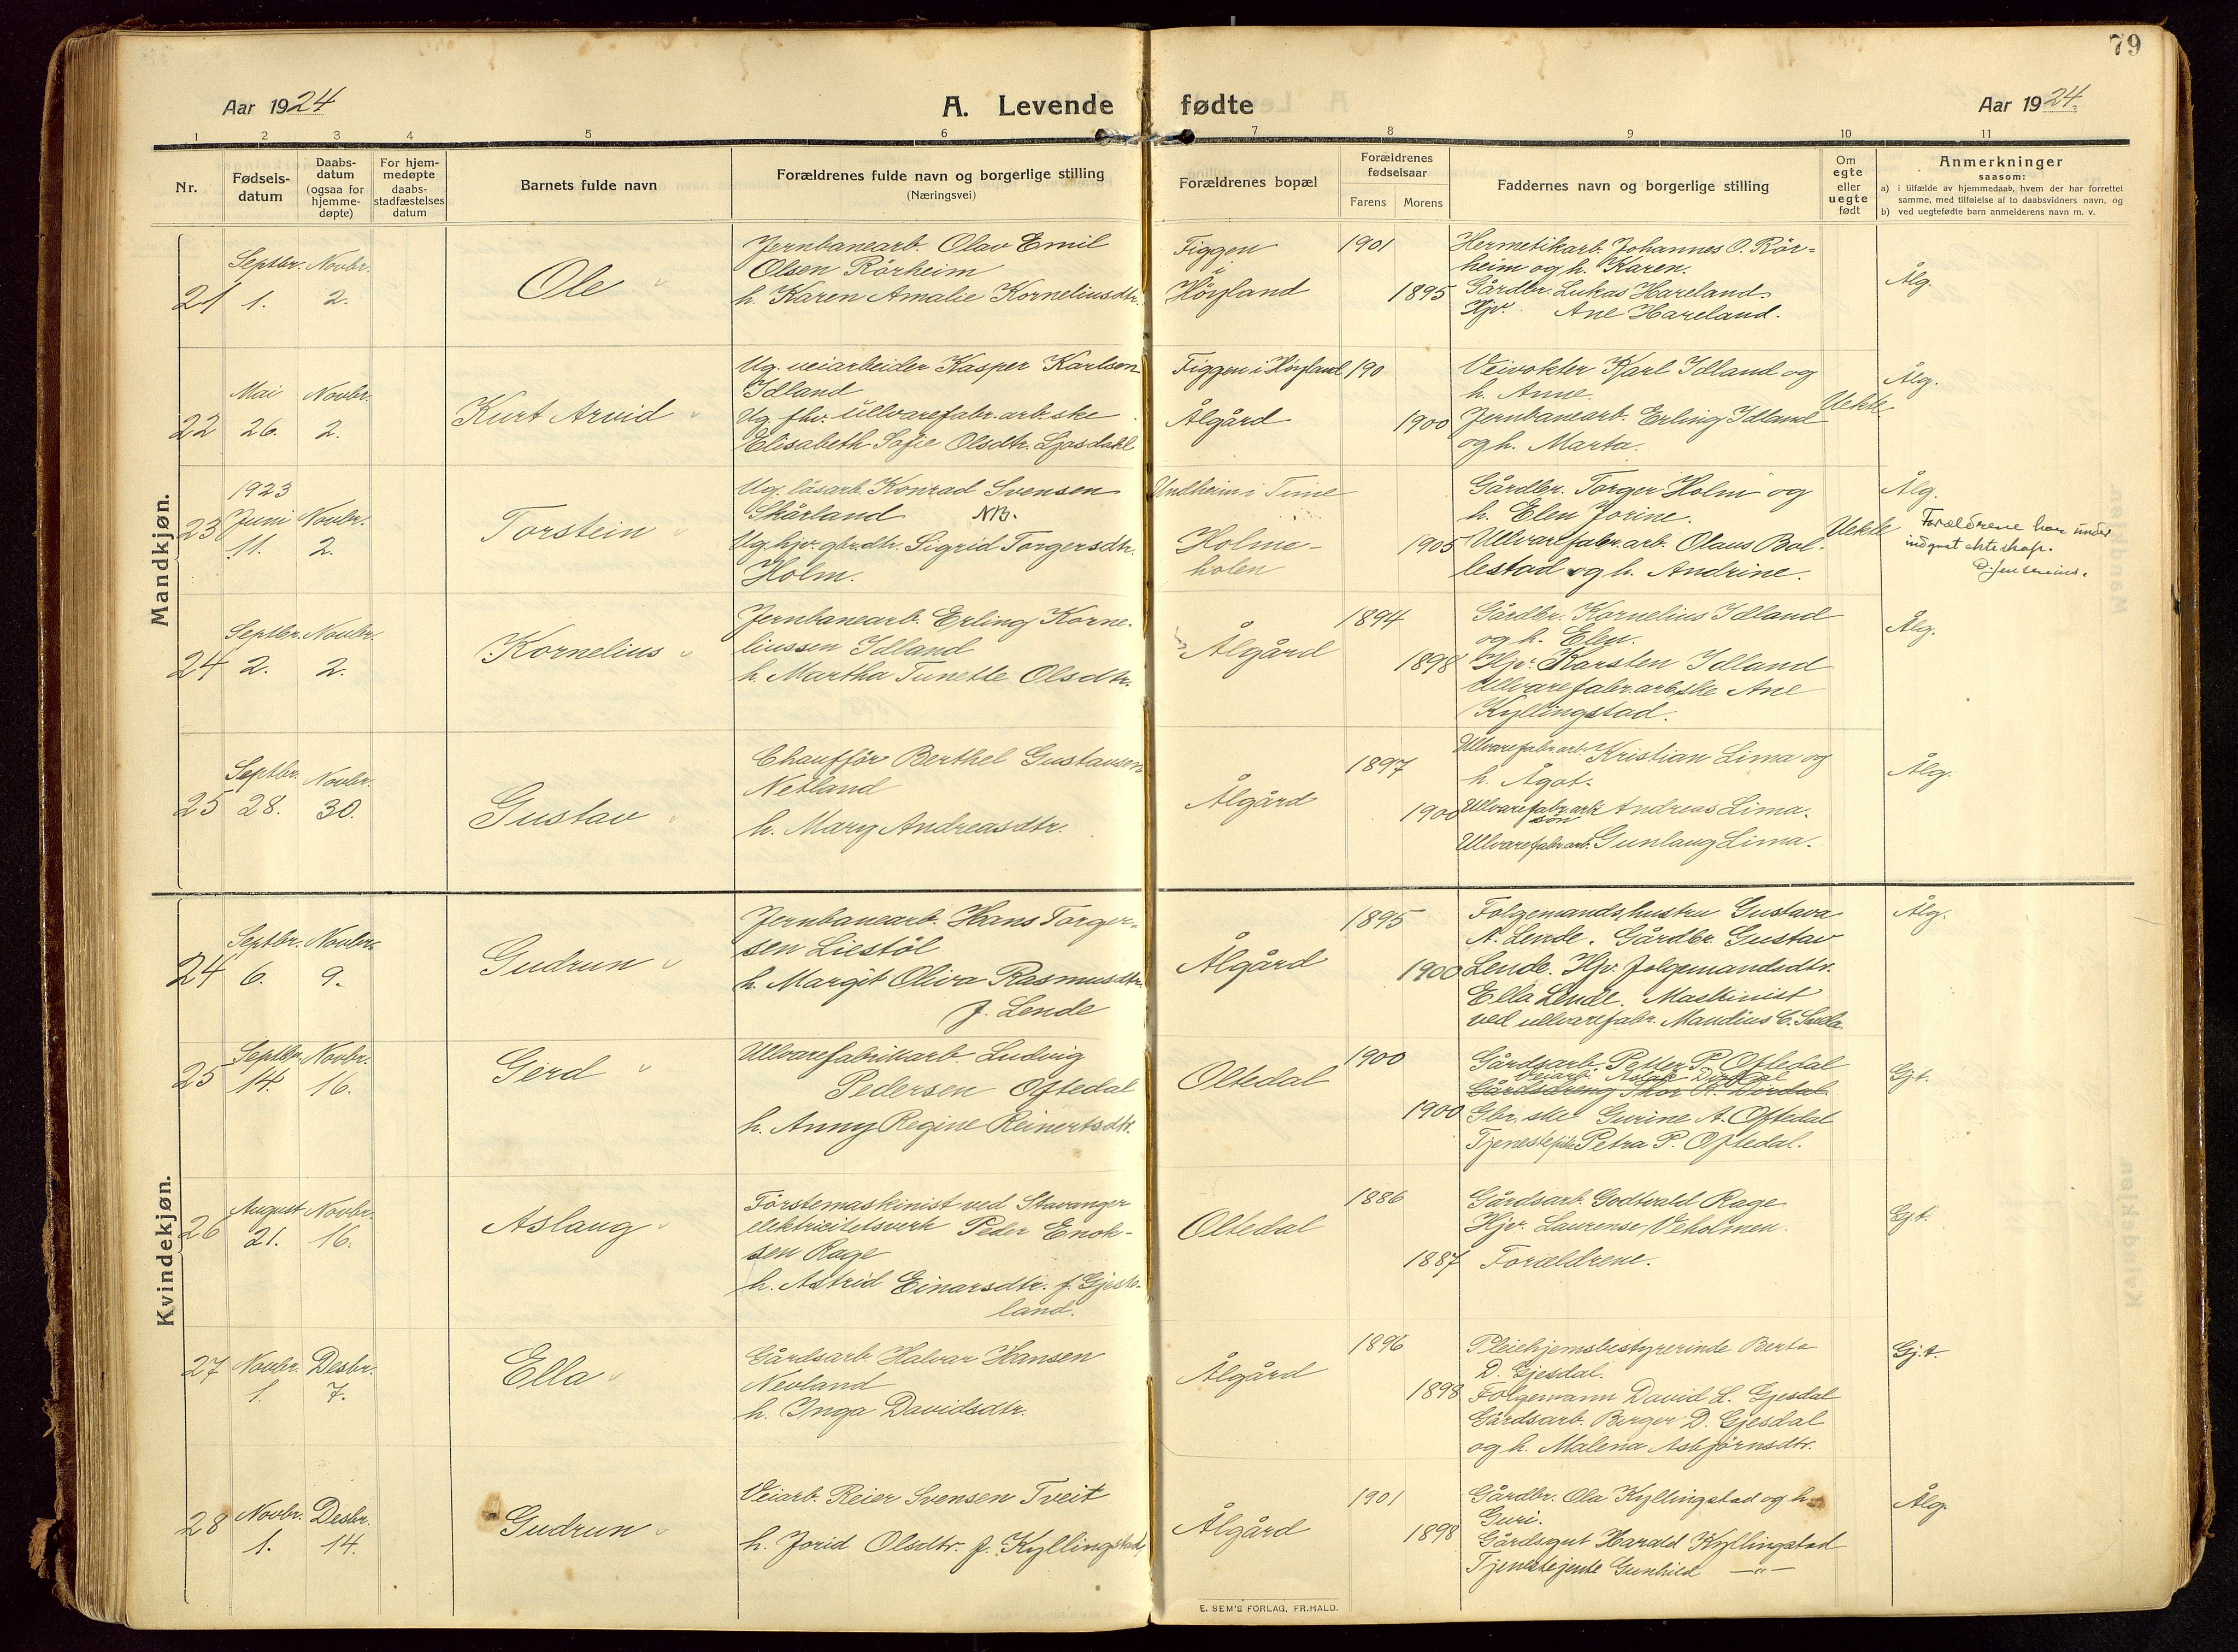 79
Aar 1924
A. Levende fødte
Aar 1924.
1 2 3 4 5 6 7 8 9 10 11
Nr.
Fødsels-
datum
Daabs-
datum
(ogsaa for
hjemme-
døpte)
For hjem-
medøpte
daabs-
stadfæstelses
datum
Barnets fulde navn
Forældrenes fulde navn og borgerlige stilling
(Næringsvei)
Forældrenes bopæl
Forældrenes
fødselsaar
Farens Morens
Faddernes navn og borgerlige stilling
Om
egte
eller
uegte
født
Anmerkninger
saasom:
a) i tilfælde av hjemmedaab, hvem der har forrettet
samme, med tilføielse af to daabsvidners navn, og
b) ved uegtefødte barn anmelderens navn m. v.
Mandkjøn.
21
Septbr. 1.
Novbr. 2.
Ole
Jernbanearb. Olav Emil
Olsen Rörheim
h. Karen Amalie Korneliusdtr.
Figgen
i
Höyland
1901
1895
Hermetikarb. Johannes O. Rör-
heim og h. Karen.
Gårdbr. Lukas Hareland.
Hjv. Ane Hareland.
Ålg.
22
Mai 26.
Novbr. 2.
Kurt Arvid
Ug. veiarbeider Kasper Karlsen
Idland
Ug. fhv. Ullvarefabr. arb.ske
Elisabeth Sofie Olsdtr. Ljosdahl
Figgen i Höyland
Ålgård
190
1900
Veivokter Karl Idland og
h. Anne.
Jernbanearb. Erling Idland
og h. Marta.
Uekte
Ålg.
23
1923
Juni 11.
Novbr. 2.
Torstein
Ug. läsarb. Konrad Svensen
Skårland NB.
Ug. hjv. gbr.dtr. Sigrid Torgersdtr.
Holm.
Undheim i Time
Holme-
holen
1905
Gårdbr. Torger Holm og
h. Elen Jorine.
Ullvarefabr. arb. Olaus Bol-
lestad og h. Andrine.
Uekte
Ålg.
Forældrene har under
indgaat ekteskap.
24
Septbr. 2.
Novbr. 2.
Kornelius
Jernbanearb. Erling Korne-
liussen Idland
h. Martha Tunette Olsdtr.
Ålgård
1894
1898
Gårdbr. Kornelius Idland
og h. Elen.
Hjv. Karsten Idland
Ullvarefabr. arb.ske Ane
Kyllingstad.
Ålg.
25
Septbr. 28.
Novbr. 30.
Gustav
Chaufför Berthel Gustavsen
Netland
h. Mary Andreasdtr.
Ålgård
1897
1900
Ullvarefabr.arb. Kristian Lima og
h. Ågot.
Ullvarefabr.arb. Andreas Lima.
sön
Ullvarefabr.arb. Gunlaug Lima.
Ålg.
Kvindekjøn.
24
Septbr. 6.
Novbr. 9.
Gudrun
Jernbanearb. Hans Torger-
sen Liestöl
h. Margit Oliva Rasmusdtr.
f. Lende
Ålgård
1895
1900
Folgemandshustru Gustava
N. Lende. Gårdbr. Gustav
Lende. Hjv. folgemandsdtr.
Ella Lende. Maskinist
ved ullvarefabr. Mandius C.
Ålg.
25
Septbr. 14.
Novbr. 16.
Gerd
Ullvarefabrikarb. Ludvig
Pedersen Oftedal
h. Anny Regine Reinertsdtr.
Oltedal
1900
1900
Gårdsarb. Petter P. Oftedal
Veiarb. Aslak Dirdal
Gårdsdreng Thor A. Dirdal
Gbr.ske Gurine A. Oftedal
Tjenestepike Petra P. Oftedal.
Gj.t.
26
August 21.
Novbr. 16.
Aslaug
Förstemaskinist ved Stavanger
elektricitetsverk Peder Enok-
sen Rage
h. Astrid Einarsdtr. f. Gjeste-
land.
Oltedal
1886
1887
Gårdsarb. Godtvald Rage
Hjv. Laurense Veholmen.
Forældrene.
Gj.t.
27
Novbr. 1.
Desbr. 7.
Ella
Gårdsarb. Halvar Hansen
Nevland
h. Inga Davidsdtr.
Ålgård
1896
1898
Pleiehjemsbestyrerinde Berta
D. Gjesdal.
Folgemann David L. Gjesdal
Gårdsarb. Birger D. Gjesdal
og h. Malena Asbjörnsdtr.
Gj.t.
28
Novbr. 1.
Desbr. 14.
Gudrun
Veiarb. Reier Svensen Tveit
h. Jorid Olsdtr. f. Kyllingstad
Ålgård
1901
1898
Gårdbr. Ola Kyllingstad og h.
Guri.
Gårdsgut Harald Kyllingstad
Tjenestejente Gunhild —"—
Ålg.
E. SEM'S FORLAG, FR.HALD.